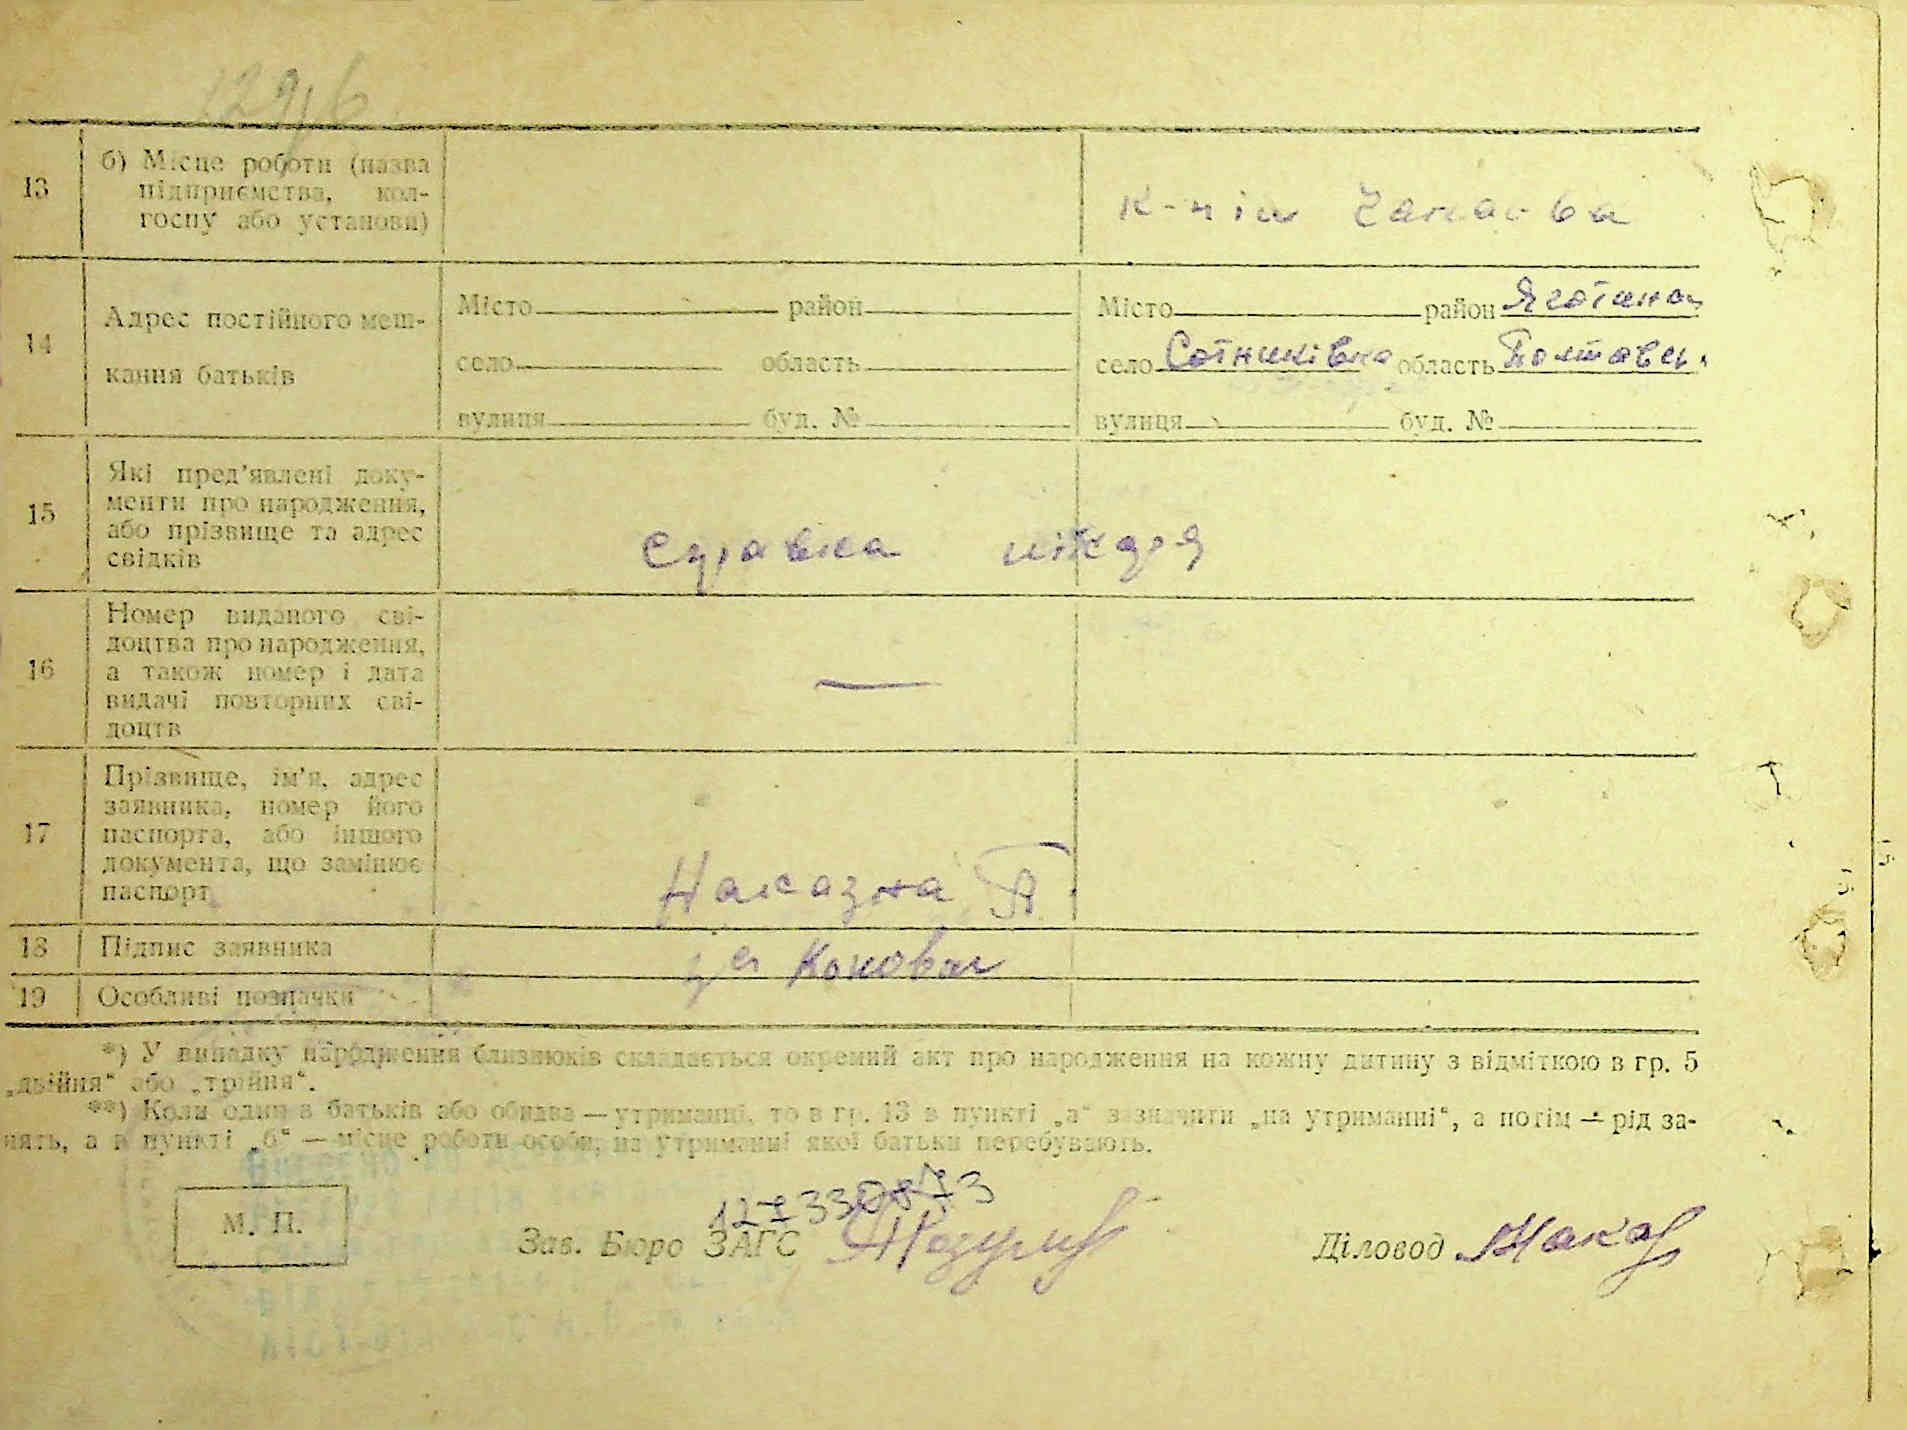 129/6
13
б) Місце роботи (назва
підприємства, кол-
госпу або установи)
к-нін Чапаєва
14
Адрес постійного меш-
кання батьків
Місто район
село область
вулиця буд. №
Місто район Яготинсь
село Сотниківка область Полтавсь.
вулиця буд. №
15
Які пред'явлені доку-
менти про народження,
або прізвище та адрес
свідків
справка лікаря
16
Номер виданого сві-
доцтва про народження,
а також номер і дата
видачі повторних сві-
доцтв
—
17
Прізвище, ім'я, адрес
заявника, номер його
паспорта, або іншого
документа, що замінює
паспорт
Наказна П.
18
Підпис заявника
Коновал
19
Особливі позначки
*) У випадку народження близнюків складається окремий акт про народження на кожну дитину з відміткою в гр. 5
„двійня“ або „трійня“.
**) Коли один з батьків або обидва — утриманці, то в гр. 13 в пункті „а“ зазначити „на утриманні“, а потім — рід за-
нять, а в пункті „б“ — місце роботи особи, на утриманні якої батьки перебувають.
М. П.
Зав. Бюро ЗАГС
Діловод Макар